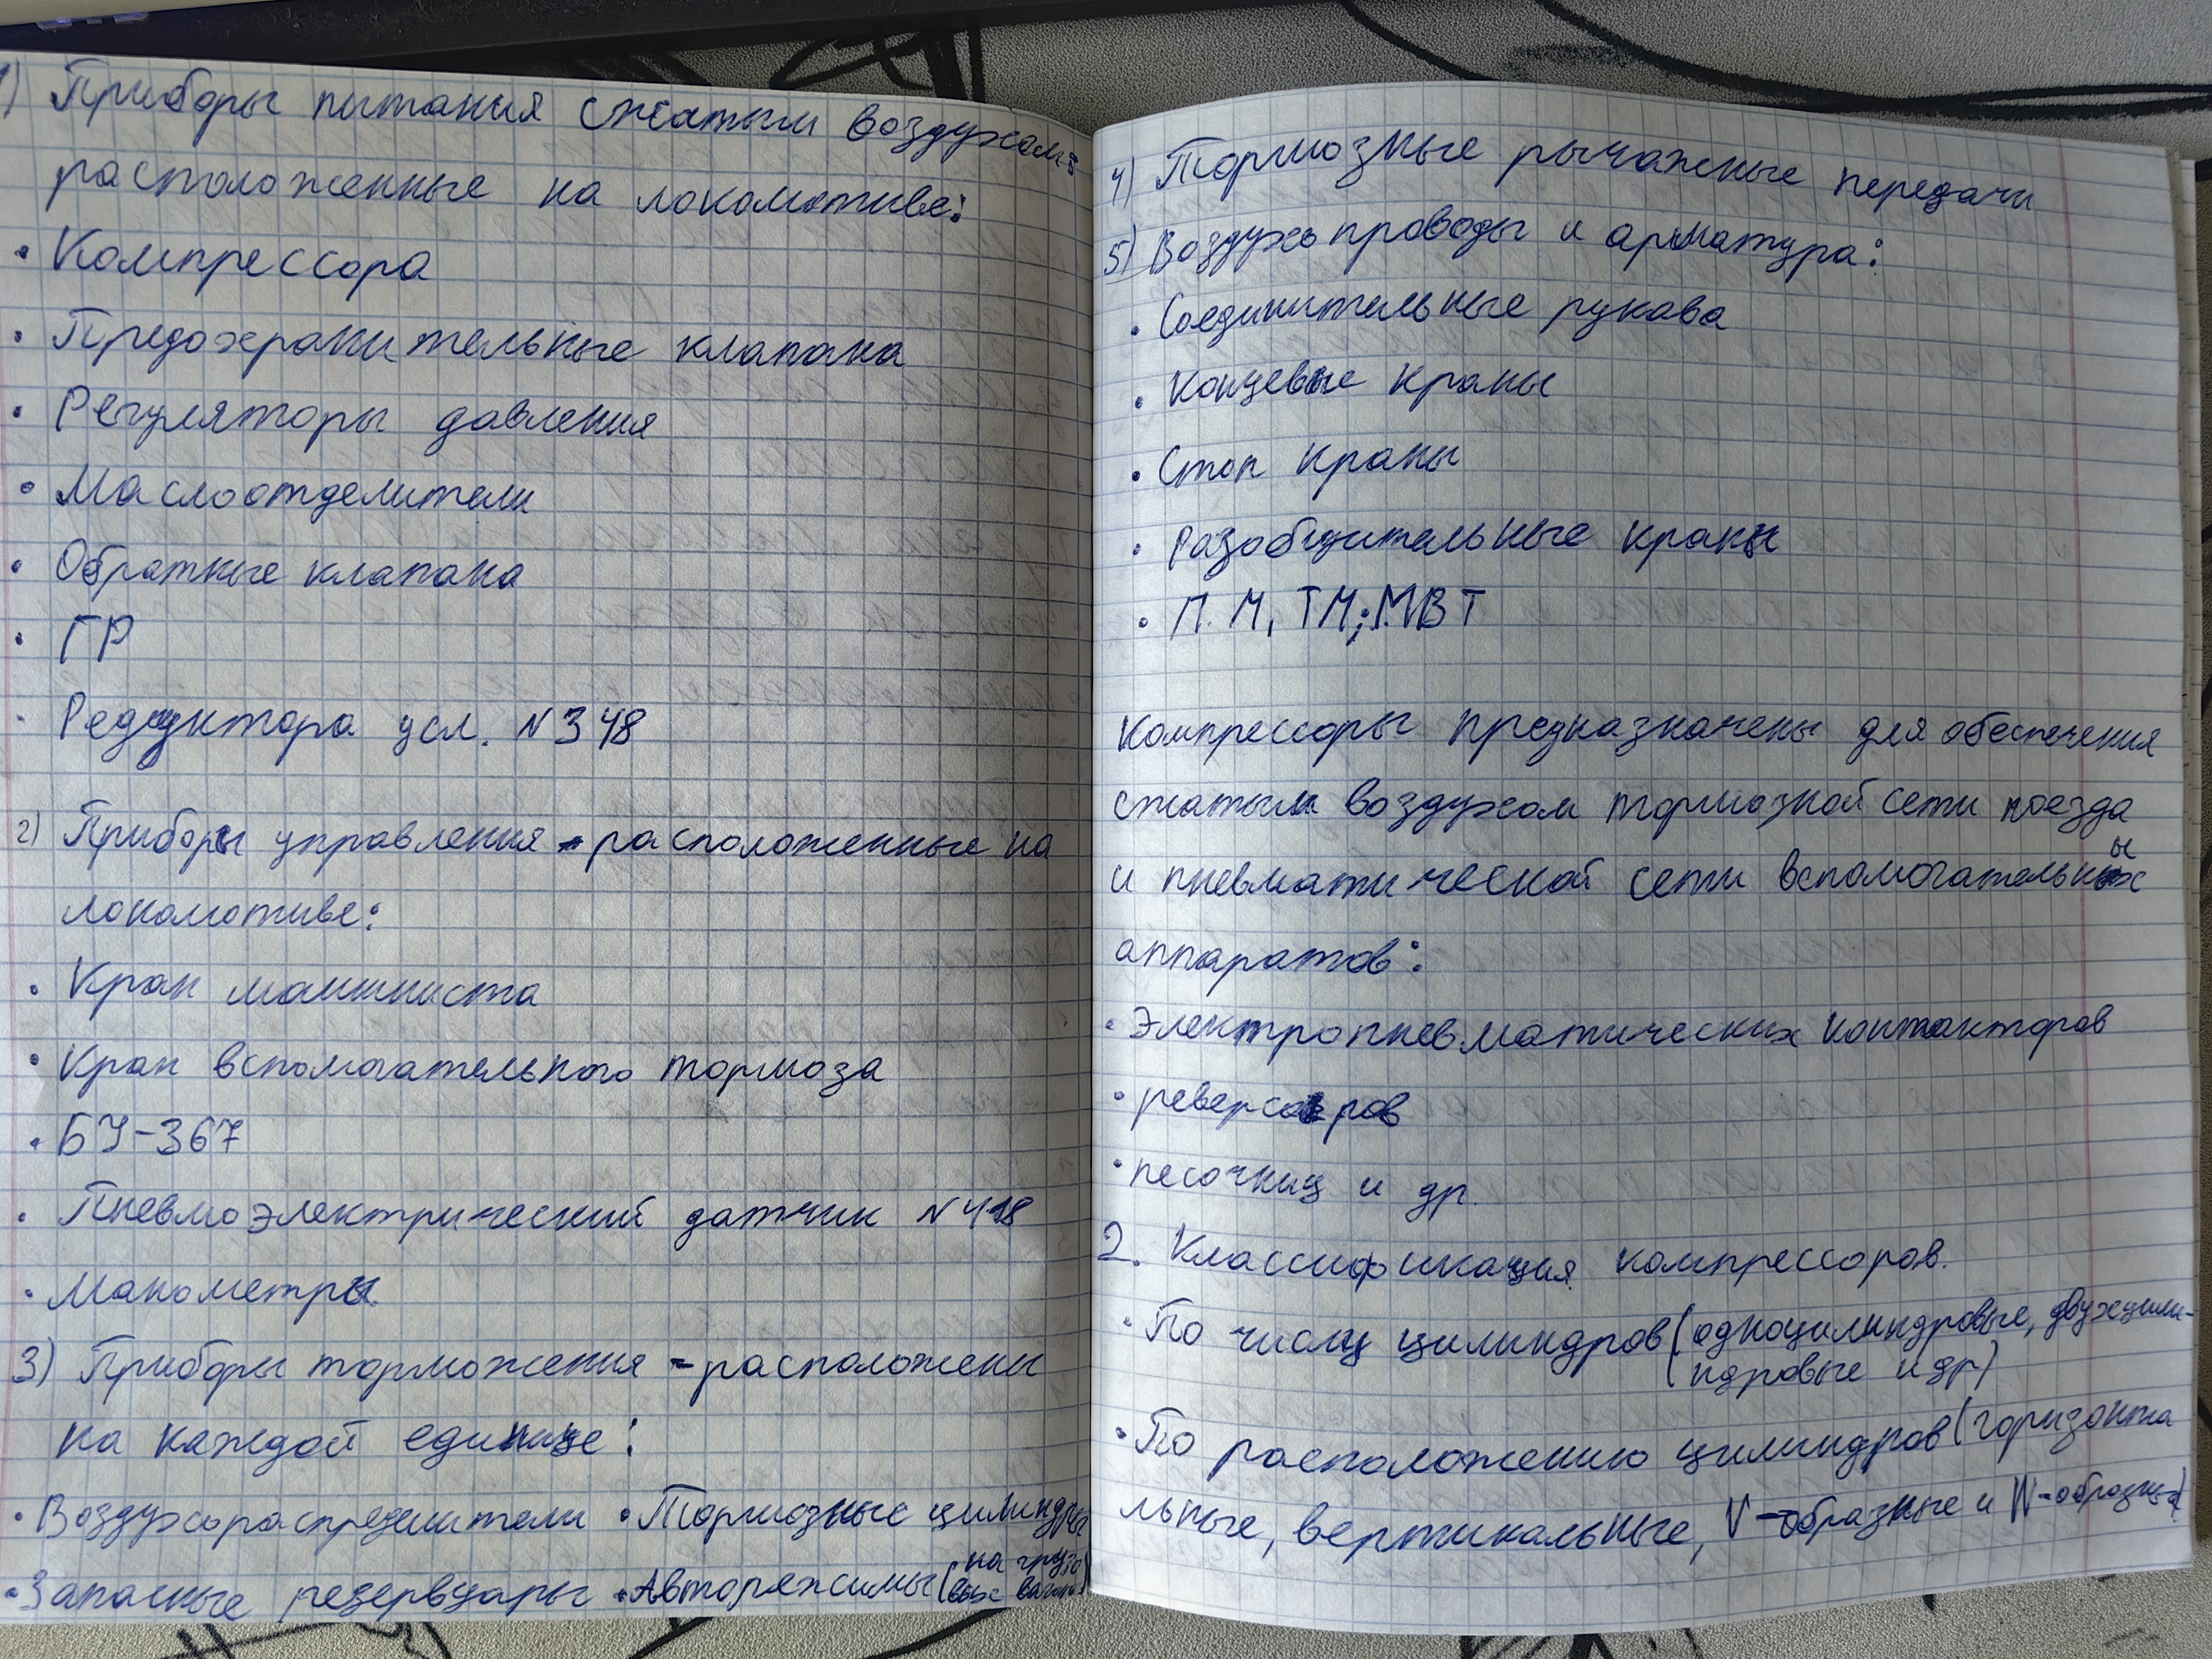 1) Приборы питания сжатым воздухом
расположенные на локомотиве:
• Компрессора
• Предохранительные клапана
• Регуляторы давления
• Маслоотделители
• Обратные клапана
• ГР
• Редуктора усл. №348
2) Приборы управления - расположенные на
локомотиве:
• Кран машиниста
• Кран вспомогательного тормоза
• БУ-367
• Пневмоэлектрический датчик №418
• Манометры.
3) Приборы торможения - расположены
на каждой единице:
• Воздухораспределители • Тормозные цилиндры
• Запасные резервуары • Авторежимы (на грузо
вых вагонах)
4) Тормозные рычажные передачи
5) Воздухопроводы и арматура:
• Соединительные рукава
• Концевые краны
• Стоп краны
• Разобщительные краны
• П.М, ТМ; МВТ
Компрессоры предназначены для обеспечения
сжатым воздухом тормозной сети поезда
и пневматической сети вспомогательных
аппаратов:
• Электропневматических контакторов
• реверсоров
• песочниц и др.
2. Классификация компрессоров.
• По числу цилиндров (одноцилиндровые, двухцили-
ндровые и др)
• По расположению цилиндров (горизонта
льные, вертикальные, V-образные и W-образные)